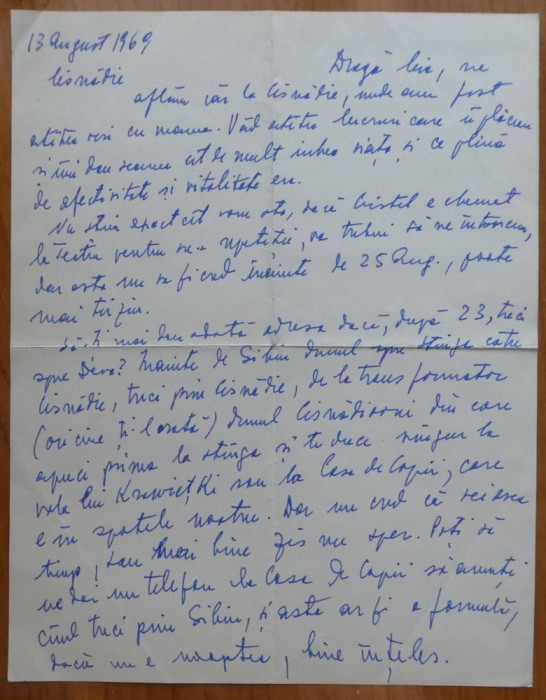 13 August 1969
Cisnădie Dragă Lia, ne
aflăm iar la Cisnădie, unde am fost
atâtea veri cu mama. Văd atâtea lucruri care îi plăceau
și îmi dau seama cât de mult iubea viața, și ce plină
de afectivitate și vitalitate era.
Nu știu exact cât vom sta, dacă Cristel e chemat
la Teatru pentru vre-o repetiție, va trebui să ne întoarcem,
dar asta nu va fi cred înainte de 25 Aug., poate
mai târziu.
Să-ți mai dau odată adresa dacă, după 23, treci
spre Deva? Înainte de Sibiu drumul spre stânga către
Cisnădie, treci prin Cisnădie, de la transformator
(oricine ți-l arată) drumul Cisnădioarei din care
apuci prima la stânga și te duce singur la
vila lui Krawietzki sau la Casa de Copii, care
e în spatele nostru. Dar nu cred că vei avea
timp, sau mai bine zis nu sper. Poți să
ne dai un telefon la Casa de Copii să anunți
când treci prin Sibiu, și asta ar fi o formulă,
dacă nu e noaptea, bine înțeles.